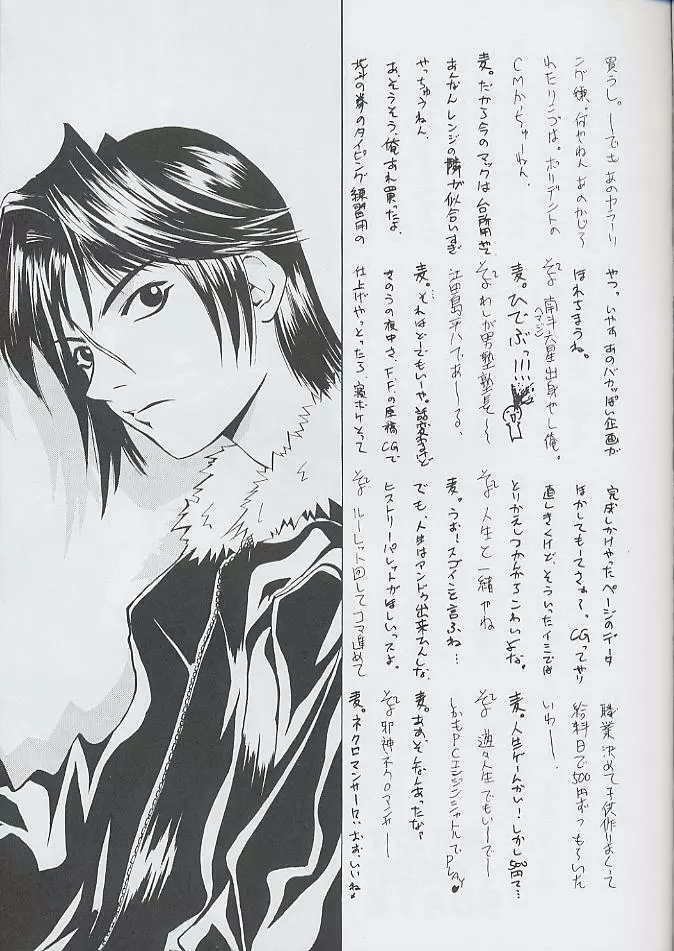 買うし。ーでも あのヤラーリ
ング 練。何やねん あのかじら
れたリンゴは。ポリデントの
CMかっちゅーねん。
麦。だから今のマックは 台所用せ。
あんなん レンジの隣が似合いすぎ
やっちゅうねん。
あ、そうそう、俺あれ買ったよ。
北斗の拳のタイピング練習用の
やつ。いやす あのバカっぱい企画が
ほれちまうね。
そよ 南斗六星出身やし俺。
ヘマジン
麦。ひでぶっ!!!
そよ わしが男塾塾長〜〜
江田島平八であ〜〜る。
麦。それはどーでもいーや。話変わるけど
きのうの夜中さ、F.F.の原稿CGで
仕上げやっとったら、寝ボケとって
完成しかけやったページのデータ
ほかしてもーてさぁ〜。CGってやり
直しきくけど、そういったイミでは
とりかえしつかんからこわいよな。
そよ 人生と一緒やね
麦。うお!スゴイこと言ふね…
でも、人生はアンドゥ出来てんしな。
ヒストリーパレットがほしいっスよ。
そよ ルーレット回して コマ進めて
職業決めて子供作りまくって
給料日で500円ずつもらいた
いわー。
麦。人生ゲームかい!しかし500円て…
そよ 遊々人生でもいーでー
しかもPCエンジンシャトルで
Play♥
麦。あぁそんなんあったなぁ
そよ 邪神ネクロマンサー
麦。ネクロマンサー!?おお、いいね。